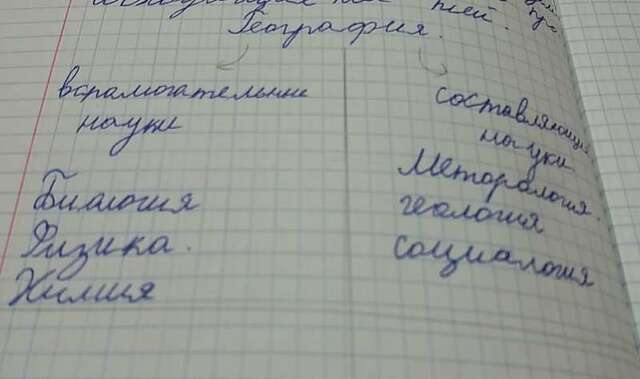 География.
вспамогательние
науки
Биалогия
Физика.
Химия
составляющи
науки
Меторалогия.
геология
социалогия